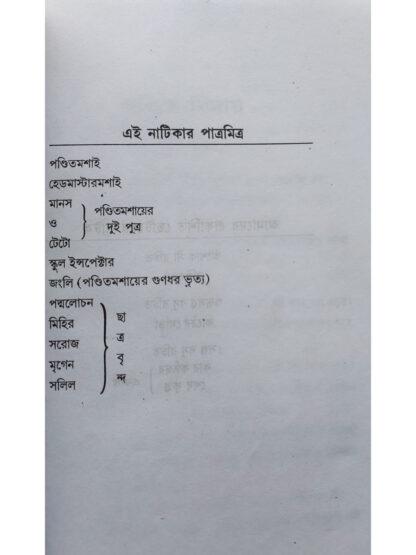 এই নাটিকার পাত্রমিত্র
পণ্ডিতমশাই
হেডমাস্টারমশাই
মানস
ও
টেটো
পণ্ডিতমশায়ের
দুই পুত্র
স্কুল ইন্সপেক্টার
জংলি (পণ্ডিতমশায়ের গুণধর ভৃত্য)
পদ্মলোচন
মিহির
সরোজ
মৃগেন
সলিল
ছা
ত্র
বৃ
ন্দ